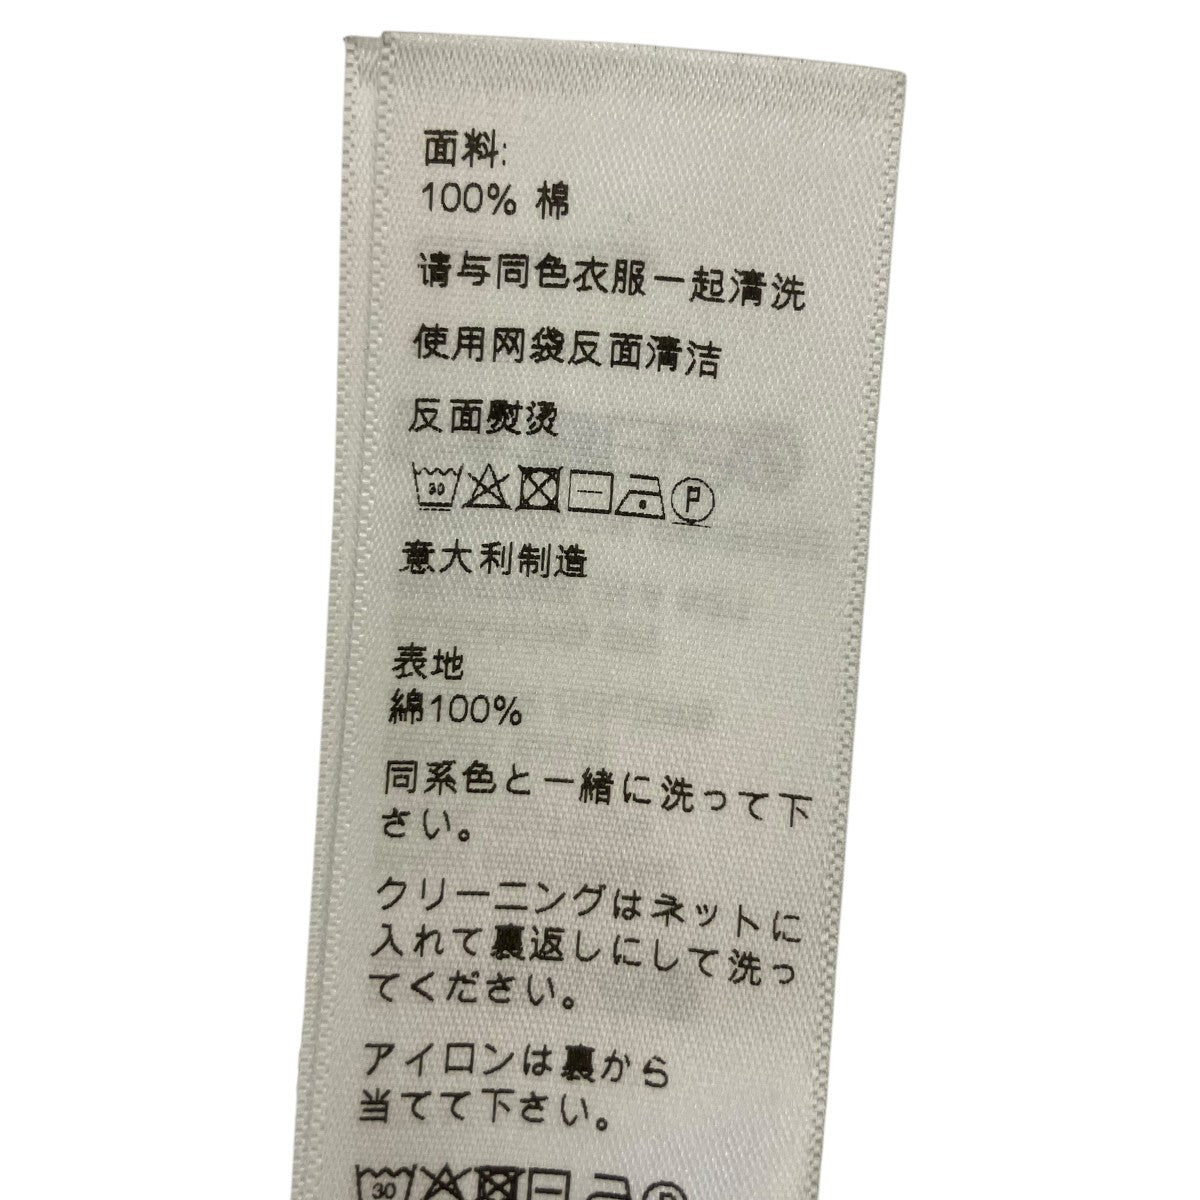 面料:
100% 棉
请与同色衣服一起清洗
使用网袋反面清洁
反面熨烫
30 P
意大利制造
表地
綿100%
同系色と一緒に洗って下
さい。
クリーニングはネットに
入れて裏返しにして洗っ
てください。
アイロンは裏から
当てて下さい。
30 P